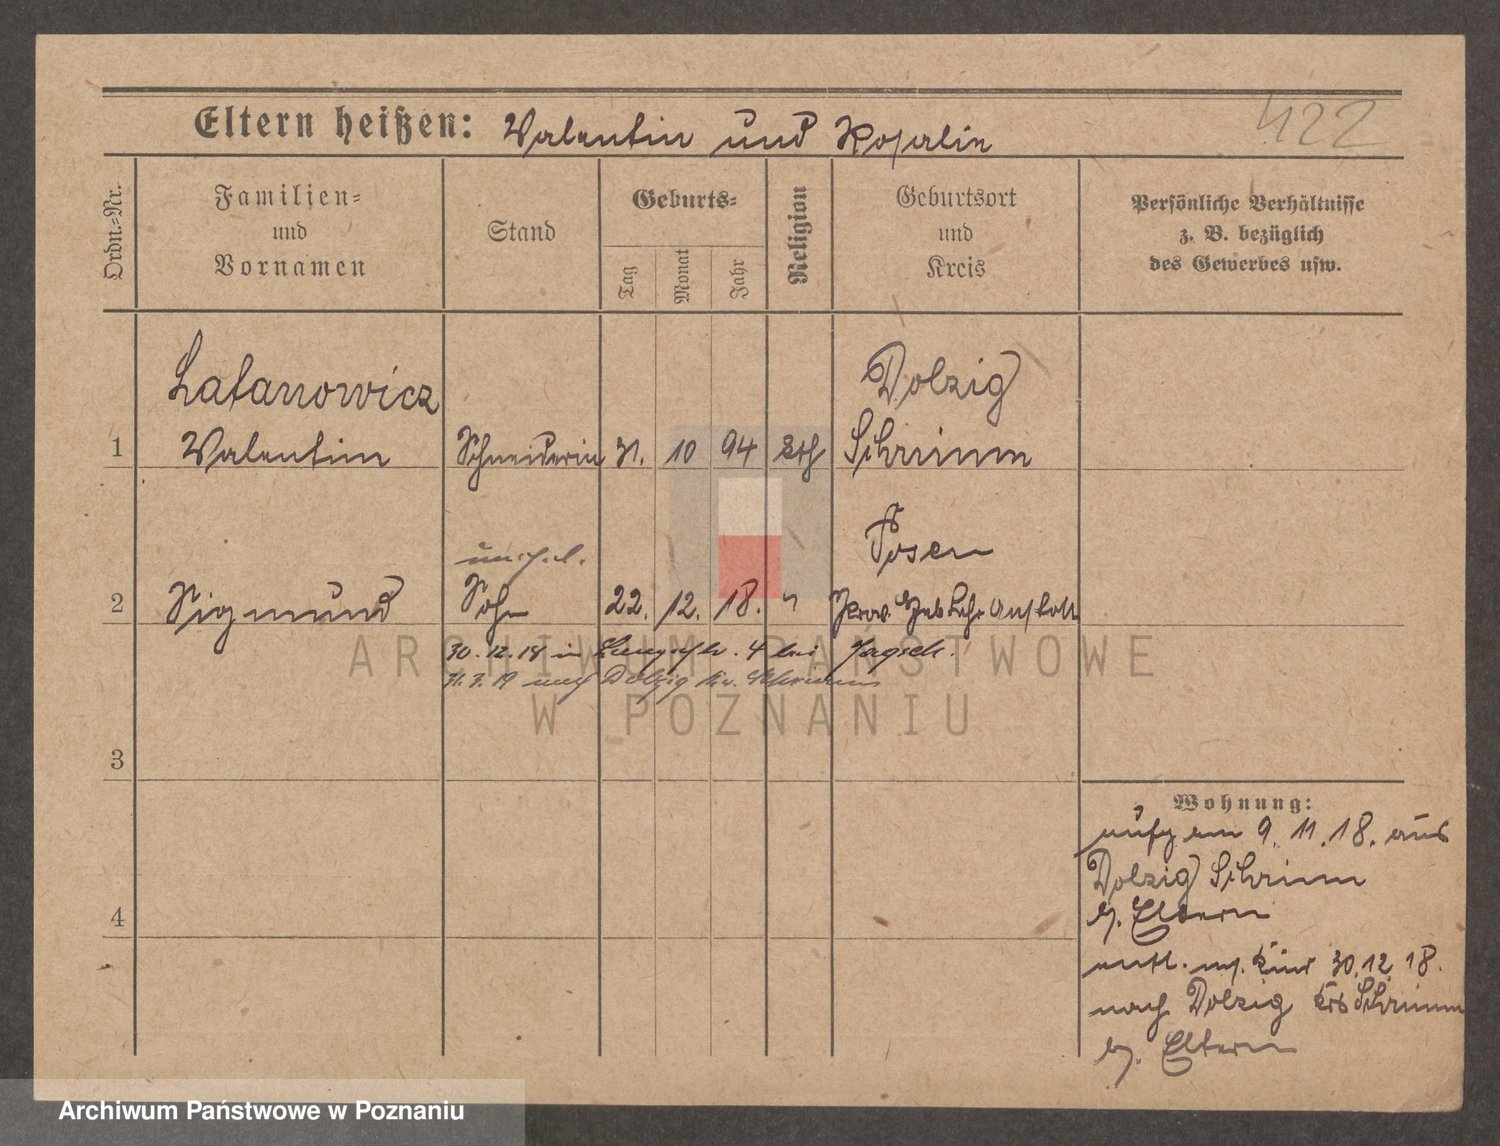 422
Eltern heißen: Valentin und Rosalie
Ordn.=Nr.
Familien=
und
Vornamen
Stand
Geburts=
Tag
Monat
Jahr
Religion
Geburtsort
und
Kreis
Persönliche Verhältnisse
z. B. bezüglich
des Gewerbes usw.
Latanowicz
Dolzig
1 Valentin Schneiderin 31. 10 94 kth Schrimm
unehl.
Posen
2 Sigmund Sohn 22. 12. 18. " Prov. Heb Lehr Anstalt
30.12.18 in 4 bei
31.3.19 nach Dolzig Kr. Schrimm
3
4
Wohnung:
aufg am 9. 11. 18. aus
Dolzig Schrimm
b. Eltern
entl. m. Kind 30.12.18.
nach Dolzig Krs Schrimm
b. Eltern
ARCHIWUM PAŃSTWOWE
W POZNANIU
Archiwum Państwowe w Poznaniu